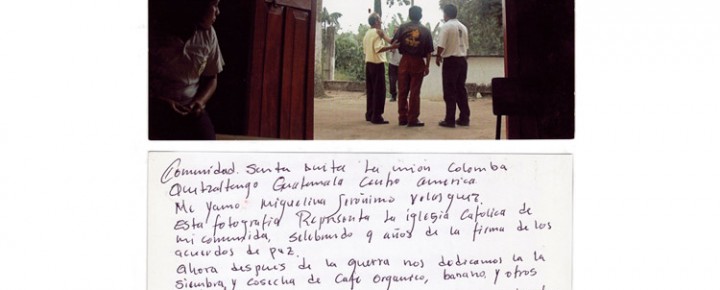 Comunidad. Santa Anita La unión Colomba
Quetzaltengo Guatemala Centro America
Me yamo: Miquelina Gerónimo Velasquez.
Esta fotografia Representa la iglesia Catolica de
mi comunida, selebrando 9 años de la firma de los
acuerdos de paz.
Ahora después de la guerra nos dedicamos la la
siembra, y cosecha de Cafe organico, banano y otros